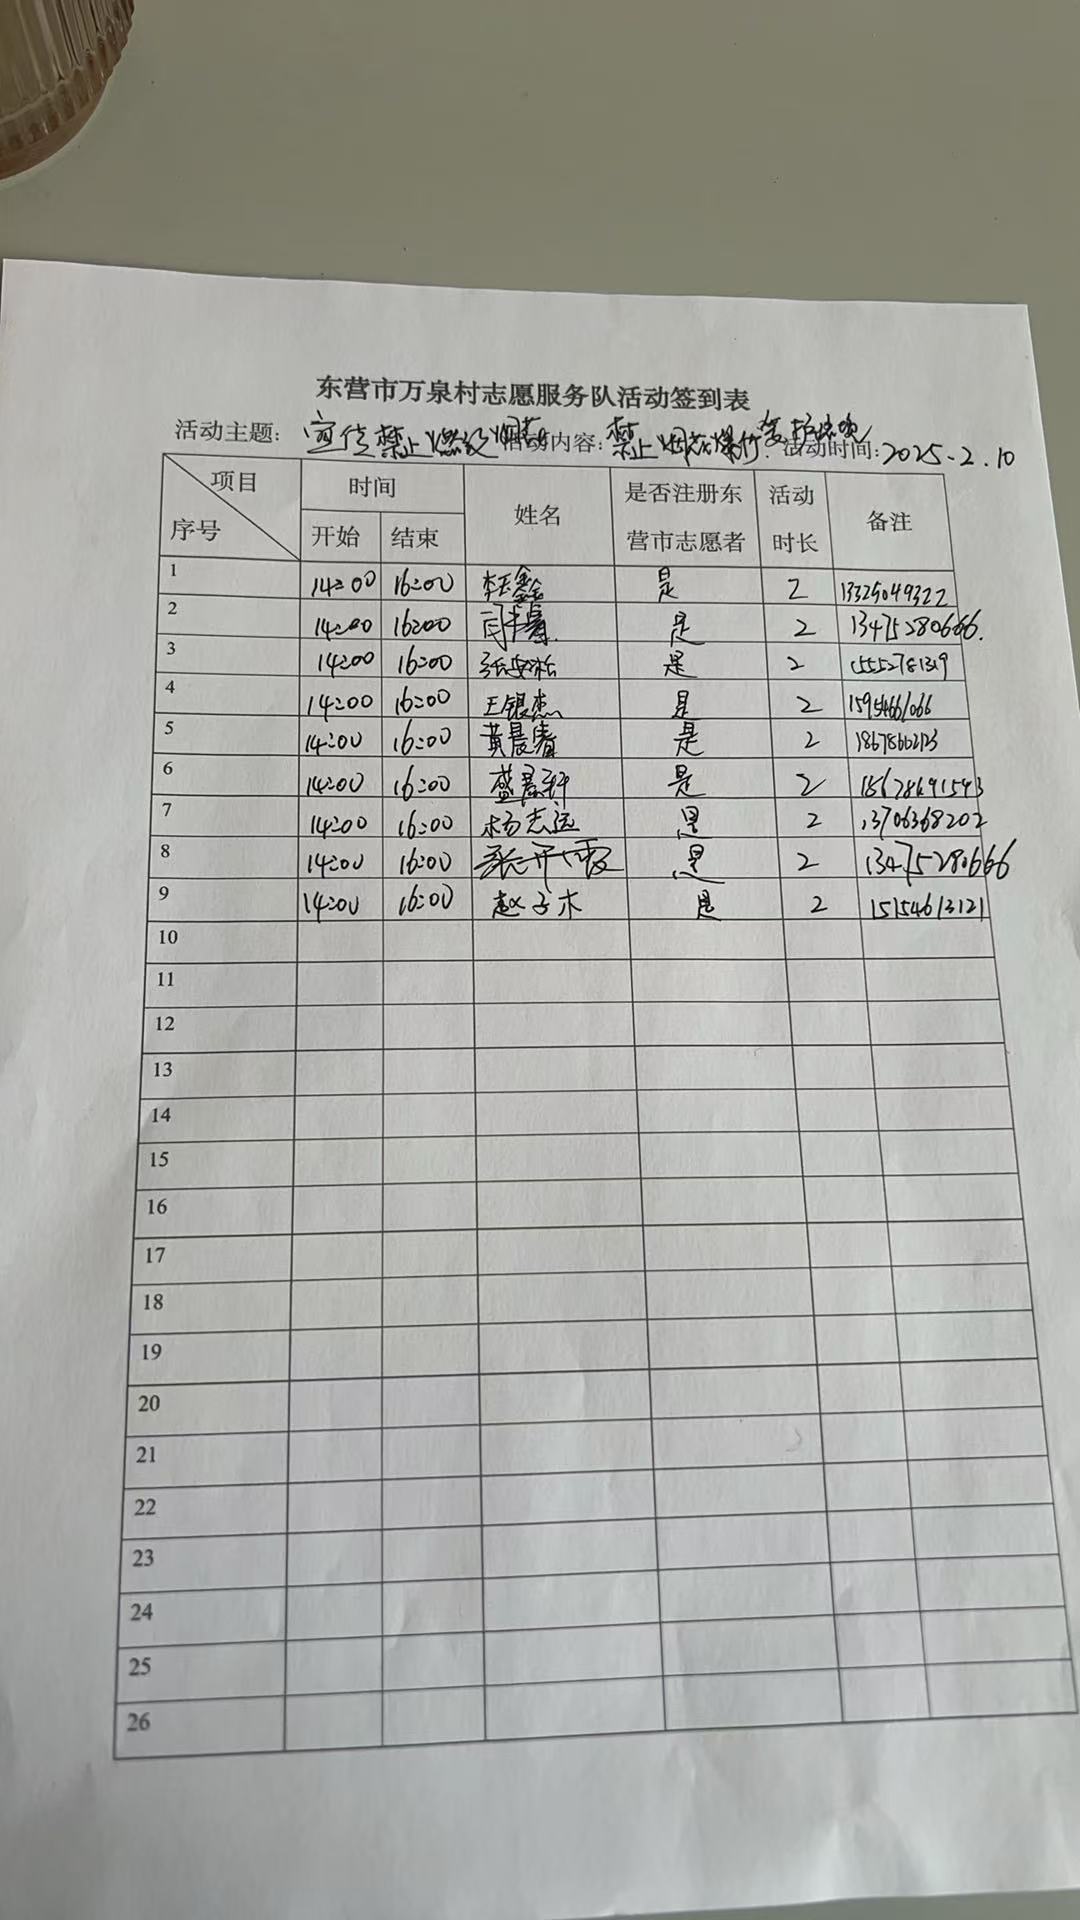 东营市万泉村志愿服务队活动签到表
活动主题: 宣传禁止燃放烟花 活动内容: 禁止烟花爆竹. 爱护环境 活动时间: 2025.2.10
项目 时间 姓名 是否注册东营市志愿者 活动时长 备注
序号 开始 结束
1 14:00 16:00 李玉鑫 是 2 13325049322
2 14:00 16:00 是 2 13475280666.
3 14:00 16:00 是 2 15552781319
4 14:00 16:00 王银杰 是 2 15954661066
5 14:00 16:00 黄晨睿 是 2
6 14:00 16:00 是 2 15628691593
7 14:00 16:00 杨志远 是 2 13706368202
8 14:00 16:00 张开霞 是 2 13475280666
9 14:00 16:00 赵子木 是 2 15154613121
10
11
12
13
14
15
16
17
18
19
20
21
22
23
24
25
26